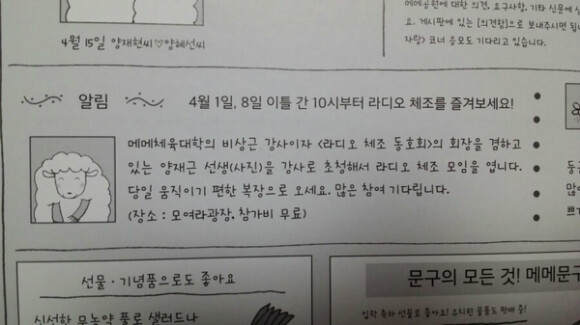 메메공원에 대한 의견, 요구사항, 기타 신문에
요. 게시판에 있는 [의견함]으로 보내주시면 됩니
자랑> 코너 응모도 기다리고 있습니다.
4월 15일 양재현씨♡양혜선씨
알림
4월 1일, 8일 이틀 간 10시부터 라디오 체조를 즐겨보세요!
메메체육대학의 비상근 강사이자 <라디오 체조 동호회>의 회장을 겸하고
있는 양재근 선생(사진)을 강사로 초청해서 라디오 체조 모임을 엽니다.
당일 움직이기 편한 복장으로 오세요. 많은 참여 기다립니다.
(장소 : 모여라광장, 참가비 무료)
선물·기념품으로도 좋아요
신선한 무농약 풀로 샐러드나
문구의 모든 것! 메메문구
입학 축하 선물로 좋아요!